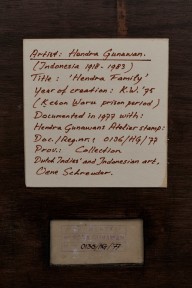 Artist: Hendra Gunawan.
(Indonesia 1918-1983)
Title: 'Hendra Family'
Year of creation: K.W. '75
(Kebon Waru prison period)
Documented in 1977 with:
Hendra Gunawans Atelier stamp:
Doc./Regnr.: 0136/HG/77
Prov.: Collection
Dutch Indies' and Indonesian art.
Oene Schreuder.
0136/HG/77